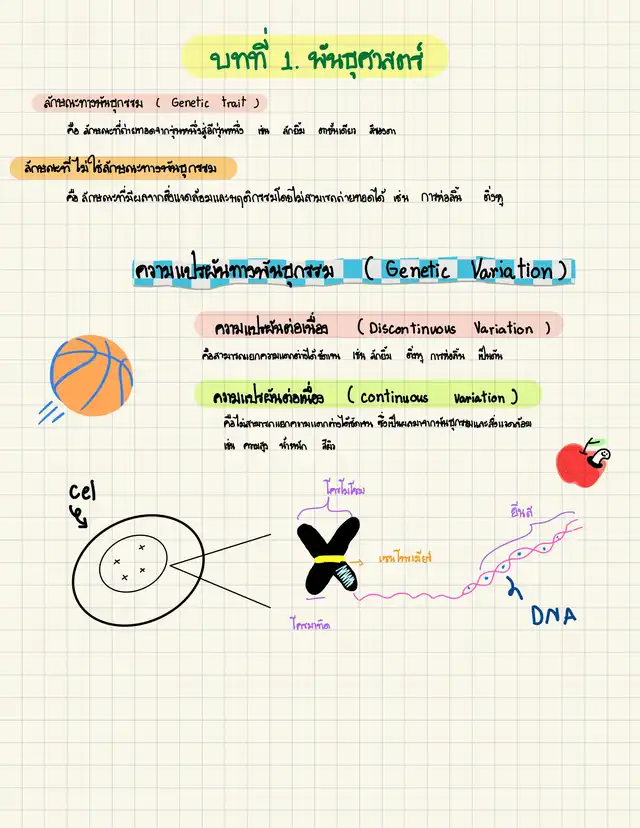 บทที่ 1. พันธุศาสตร์
ลักษณะทางพันธุกรรม ( Genetic trait )
คือ ลักษณะที่ถ่ายทอดจากรุ่นหนึ่งสู่อีกรุ่นหนึ่ง เช่น ลักยิ้ม ตาชั้นเดียว สีของตา
ลักษณะที่ไม่ใช่ลักษณะทางพันธุกรรม
คือ ลักษณะที่มีผลจากสิ่งแวดล้อมและพฤติกรรมโดยไม่สามารถถ่ายทอดได้ เช่น การห่อลิ้น ติ่งหู
ความแปรผันทางพันธุกรรม ( Genetic Variation )
ความแปรผันต่อเนื่อง ( Discontinuous Variation )
คือสามารถแยกความแตกต่างได้ชัดเจน เช่น ลักยิ้ม ติ่งหู การห่อลิ้น เป็นต้น
ความแปรผันต่อเนื่อง ( continuous variation )
คือไม่สามารถแยกความแตกต่างได้ชัดเจน ซึ่งเป็นผลมาจากพันธุกรรมและสิ่งแวดล้อม
เช่น ความสูง น้ำหนัก สีผิว
cel
โครโมโซม
ยีนส์
เซนโทรเมียร์
โครมาทิด
DNA